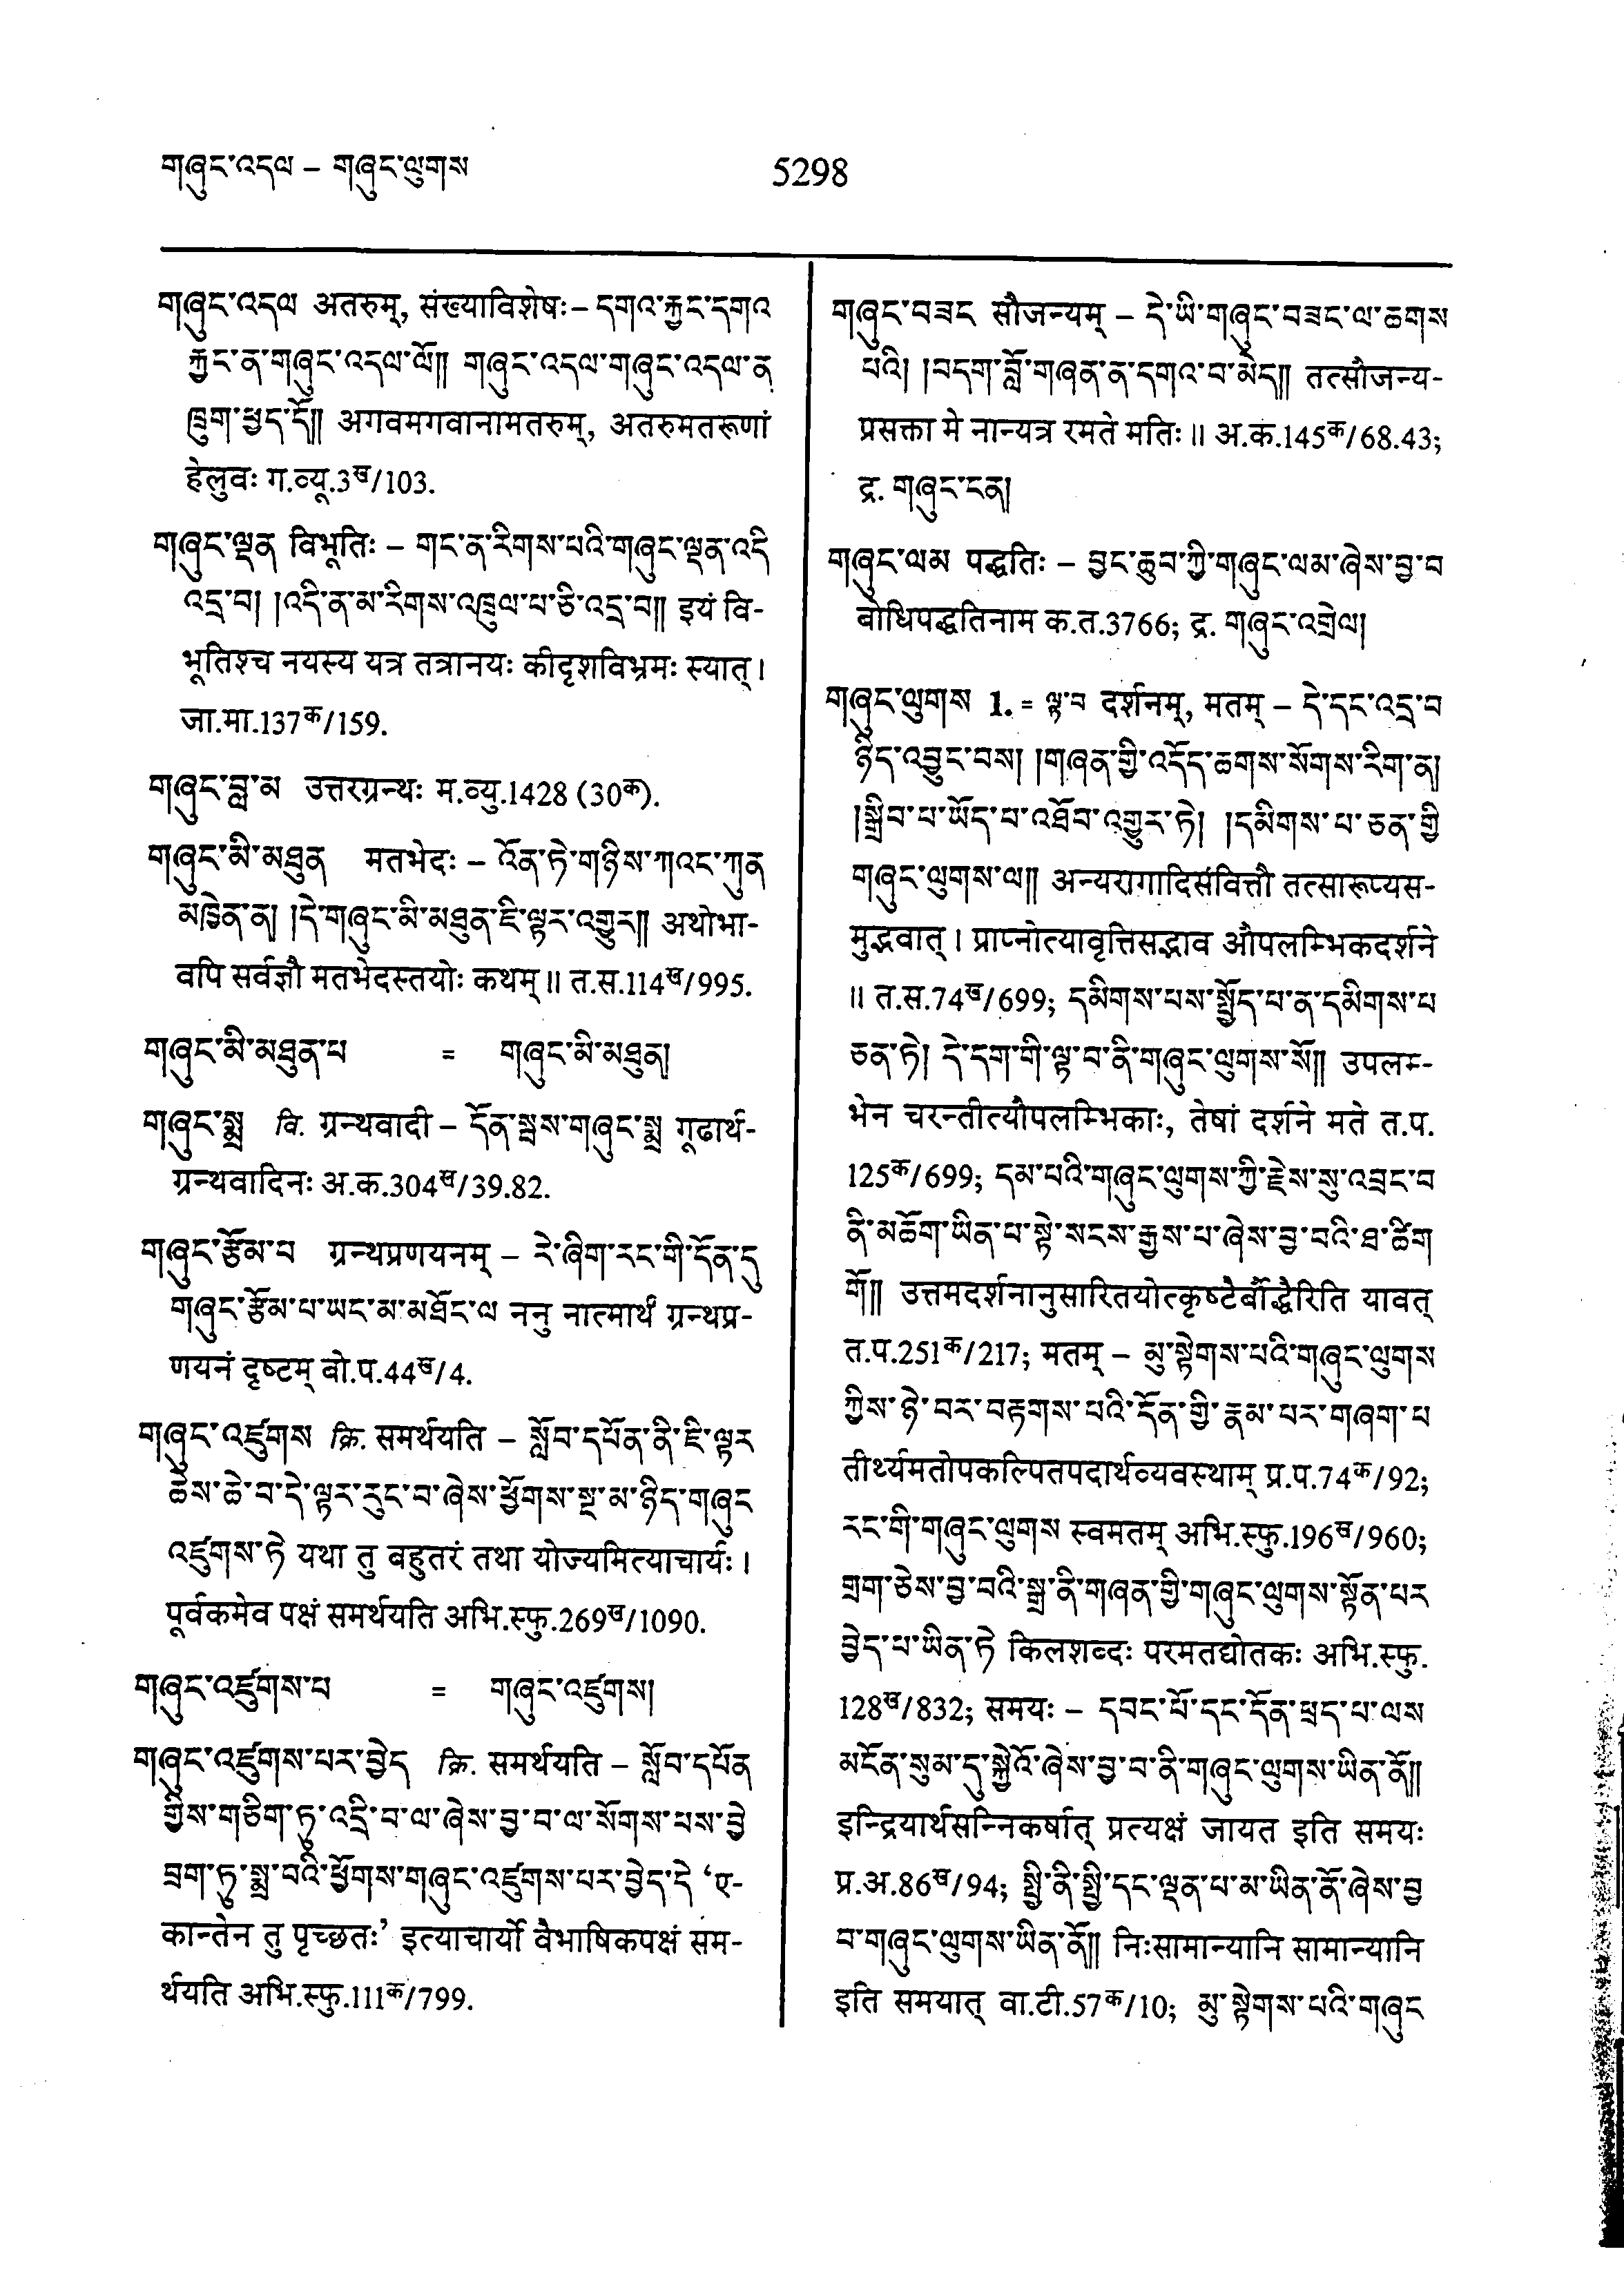 གཞུང་འདལ – གཞུང་ལུགས
5298
གཞུང་འདལ अतरुम्, संख्याविशेषः – དགའ་རྐྱང་དགའ
རྐྱང་ན་གཞུང་འདལ་ལོ།། གཞུང་འདལ་གཞུང་འདལ་ན
ཁྲུག་ཕྱད་དོ།། अगवमगवानामतरुम्, अतरुमतरूणां
हेलुवः ग.व्यू.3ख/103.
གཞུང་ལྡན विभूतिः – གང་ན་རིགས་པའི་གཞུང་ལྡན་འདི
འདྲ་བ། །འདི་ན་མ་རིགས་འཁྲུལ་པ་ཅི་འདྲ་བ།། इयं वि-
भूतिश्च नयस्य यत्र तत्रानयः कीदृशविभ्रमः स्यात् ।
जा.मा.137क/159.
གཞུང་བླ་མ उत्तरग्रन्थः म.व्यु.1428 (30क).
གཞུང་མི་མཐུན मतभेदः – འོན་ཏེ་གཉིས་ཀའང་ཀུན
མཁྱེན་ན། །དེ་གཞུང་མི་མཐུན་ཇི་ལྟར་འགྱུར།། अथोभा-
वपि सर्वज्ञौ मतभेदस्तयोः कथम् ॥ त.स.114ख/995.
གཞུང་མི་མཐུན་པ = གཞུང་མི་མཐུན།
གཞུང་སྨྲ वि. ग्रन्थवादी – དོན་སྦས་གཞུང་སྨྲ गूढार्थ-
ग्रन्थवादिनः अ.क.304ख/39.82.
གཞུང་རྩོམ་པ ग्रन्थप्रणयनम् – རེ་ཞིག་རང་གི་དོན་དུ
གཞུང་རྩོམ་པ་ཡང་མ་མཐོང་ལ ननु नात्मार्थं ग्रन्थप्र-
णयनं दृष्टम् बो.प.44ख/4.
གཞུང་འཛུགས क्रि. समर्थयति – སློབ་དཔོན་ནི་ཇི་ལྟར
ཆེས་ཆེ་བ་དེ་ལྟར་རུང་བ་ཞེས་ཕྱོགས་སྔ་མ་ཉིད་གཞུང
འཛུགས་ཏེ यथा तु बहुतरं तथा योज्यमित्याचार्यः ।
पूर्वकमेव पक्षं समर्थयति अभि.स्फु.269ख/1090.
གཞུང་འཛུགས་པ = གཞུང་འཛུགས།
གཞུང་འཛུགས་པར་བྱེད क्रि. समर्थयति – སློབ་དཔོན
གྱིས་གཅིག་ཏུ་འདྲི་བ་ལ་ཞེས་བྱ་བ་ལ་སོགས་པས་བྱེ
བྲག་ཏུ་སྨྲ་བའི་ཕྱོགས་གཞུང་འཛུགས་པར་བྱེད་དེ ‘ए-
कान्तेन तु पृच्छतः’ इत्याचार्यो वैभाषिकपक्षं सम-
र्थयति अभि.स्फु.111क/799.
གཞུང་བཟང सौजन्यम् – དེ་ཡི་གཞུང་བཟང་ལ་ཆགས
པའི། །བདག་བློ་གཞན་ན་དགའ་བ་མེད།། तत्सौजन्य-
प्रसक्ता मे नान्यत्र रमते मतिः ॥ अ.क.145क/68.43;
द्र. གཞུང་ངན།
གཞུང་ལམ पद्धतिः – བྱང་ཆུབ་ཀྱི་གཞུང་ལམ་ཞེས་བྱ་བ
बोधिपद्धतिनाम क.त.3766; द्र. གཞུང་འགྲེལ།
གཞུང་ལུགས 1. = ལྟ་བ दर्शनम्, मतम् – དེ་དང་འདྲ་བ
ཉིད་འབྱུང་བས། །གཞན་གྱི་འདོད་ཆགས་སོགས་རིག་ན།
།སྒྲིབ་པ་ཡོད་པ་འཐོབ་འགྱུར་ཏེ། །དམིགས་པ་ཅན་གྱི
གཞུང་ལུགས་ལ།། अन्यरागादिसंवित्तौ तत्सारूप्यस-
मुद्भवात् । प्राप्नोत्यावृत्तिसद्भाव औपलम्भिकदर्शने
॥ त.स.74ख/699; དམིགས་པས་སྤྱོད་པ་ན་དམིགས་པ
ཅན་ཏེ། དེ་དག་གི་ལྟ་བ་ནི་གཞུང་ལུགས་སོ།། उपलम्-
भेन चरन्तीत्यौपलम्भिकाः, तेषां दर्शने मते त.प.
125क/699; དམ་པའི་གཞུང་ལུགས་ཀྱི་རྗེས་སུ་འབྲང་བ
ནི་མཆོག་ཡིན་པ་སྟེ་སངས་རྒྱས་པ་ཞེས་བྱ་བའི་ཐ་ཚིག
གོ།། उत्तमदर्शनानुसारितयोत्कृष्टैर्बौद्धैरिति यावत्
त.प.251क/217; मतम् – མུ་སྟེགས་པའི་གཞུང་ལུགས
ཀྱིས་ཉེ་བར་བརྟགས་པའི་དོན་གྱི་རྣམ་པར་གཞག་པ
तीर्थ्यमतोपकल्पितपदार्थव्यवस्थाम् प्र.प.74क/92;
རང་གི་གཞུང་ལུགས स्वमतम् अभि.स्फु.196ख/960;
གྲག་ཅེས་བྱ་བའི་སྒྲ་ནི་གཞན་གྱི་གཞུང་ལུགས་སྟོན་པར
བྱེད་པ་ཡིན་ཏེ किलशब्दः परमतद्योतकः अभि.स्फु.
128ख/832; समयः – དབང་པོ་དང་དོན་ཕྲད་པ་ལས
མངོན་སུམ་དུ་སྐྱེའོ་ཞེས་བྱ་བ་ནི་གཞུང་ལུགས་ཡིན་ནོ།།
इन्द्रियार्थसन्निकर्षात् प्रत्यक्षं जायत इति समयः
प्र.अ.86ख/94; སྤྱི་ནི་སྤྱི་དང་ལྡན་པ་མ་ཡིན་ནོ་ཞེས་བྱ
བ་གཞུང་ལུགས་ཡིན་ནོ།། निःसामान्यानि सामान्यानि
इति समयात् वा.टी.57क/10; མུ་སྟེགས་པའི་གཞུང